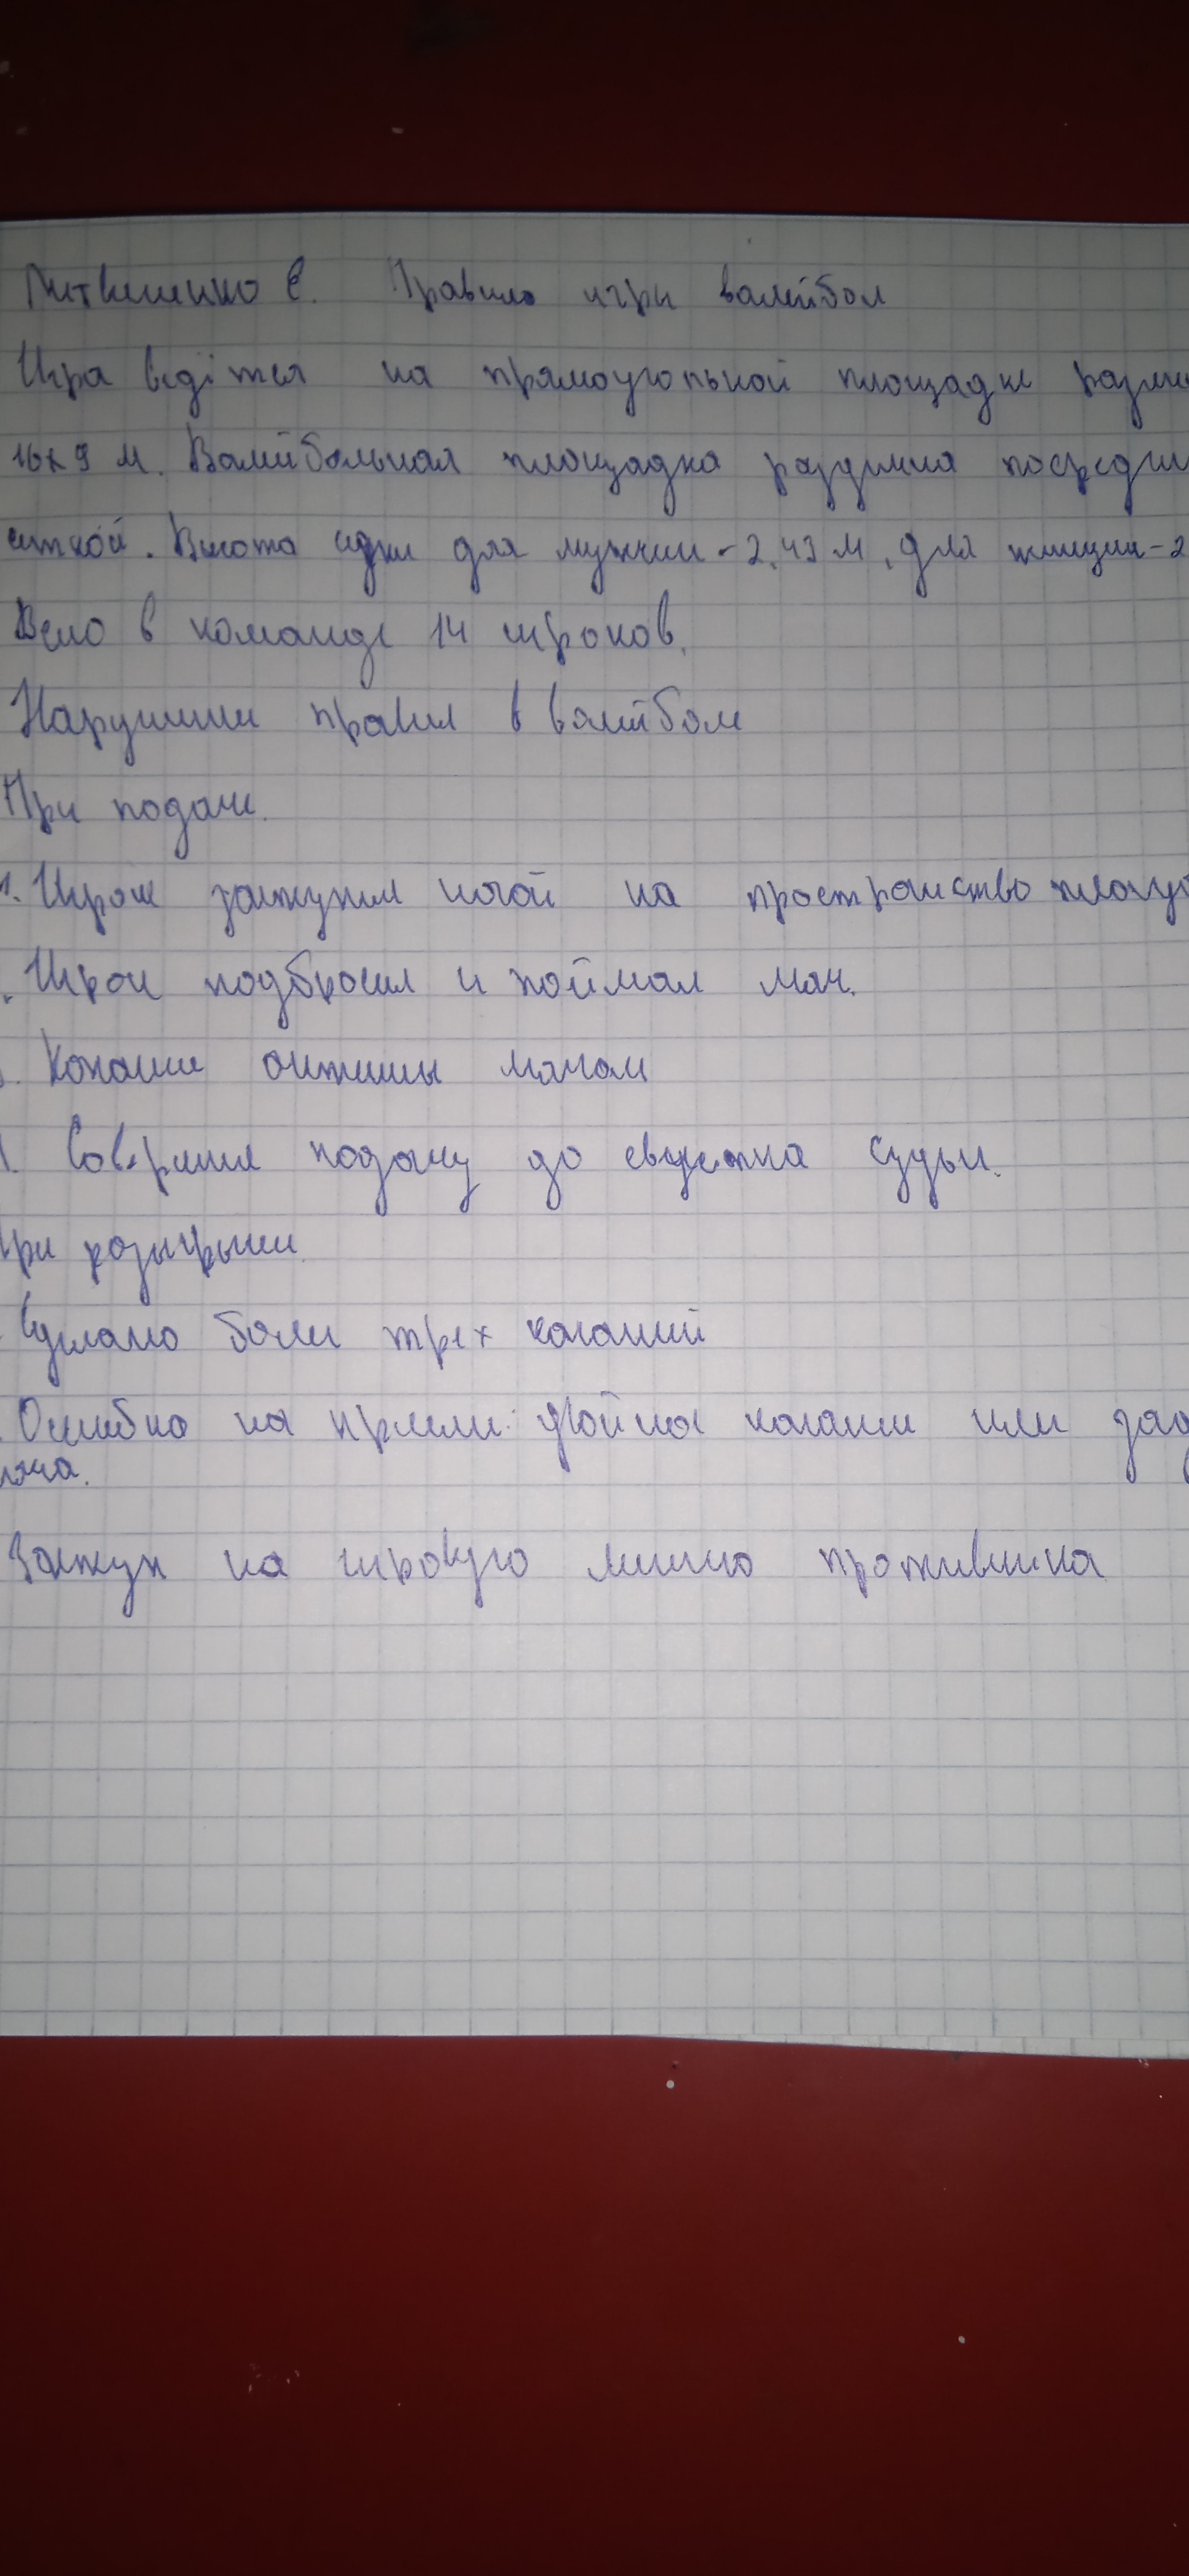 Литвиненко Е. Правило игры валейбол
Игра ведётся на прямоугольной площадке разме
16х9 м. Валейбольная площадка разделена посреди
сеткой. Высота сетки для мужчин - 2,43 м, для женщин - 2
Всего в команде 14 игроков.
Нарушение правил в валейболе
При подаче.
1. Игрок заступил ногой на пространство площ
. Игрок подбросил и поймал мяч.
. Касание антенны мячом
. Совершил подачу до свистка судьи.
При розыгрыше
Сделано более трех касаний
Ошибка на приеме: двойное касание или зад
мяча.
Заступ на игровую линию противника